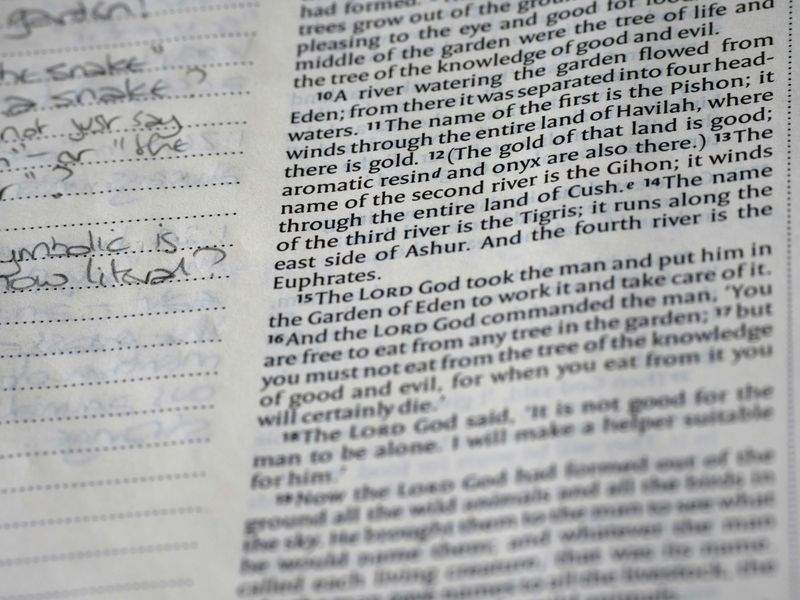 garden!
he snake"
a snake"?
not just say
"- or "the
"?
ymbolic is
how literal?
had formed.
trees grow out of the ground
pleasing to the eye and good for food.
middle of the garden were the tree of life and
the tree of the knowledge of good and evil.
10A river watering the garden flowed from
Eden; from there it was separated into four head-
waters. 11The name of the first is the Pishon; it
winds through the entire land of Havilah, where
there is gold. 12(The gold of that land is good;
aromatic resin d and onyx are also there.) 13The
name of the second river is the Gihon; it winds
through the entire land of Cush. e 14The name
of the third river is the Tigris; it runs along the
east side of Ashur. And the fourth river is the
Euphrates.
15The LORD God took the man and put him in
the Garden of Eden to work it and take care of it.
16And the LORD God commanded the man, 'You
are free to eat from any tree in the garden; 17but
you must not eat from the tree of the knowledge
of good and evil, for when you eat from it you
will certainly die.'
18The LORD God said, 'It is not good for the
man to be alone. I will make a helper suitable
for him.'
19Now the LORD God had formed out of the
ground all the wild animals and all the birds in
the sky. He brought them to the man to see what
he would name them; and whatever the man
called each living creature, that was its name.